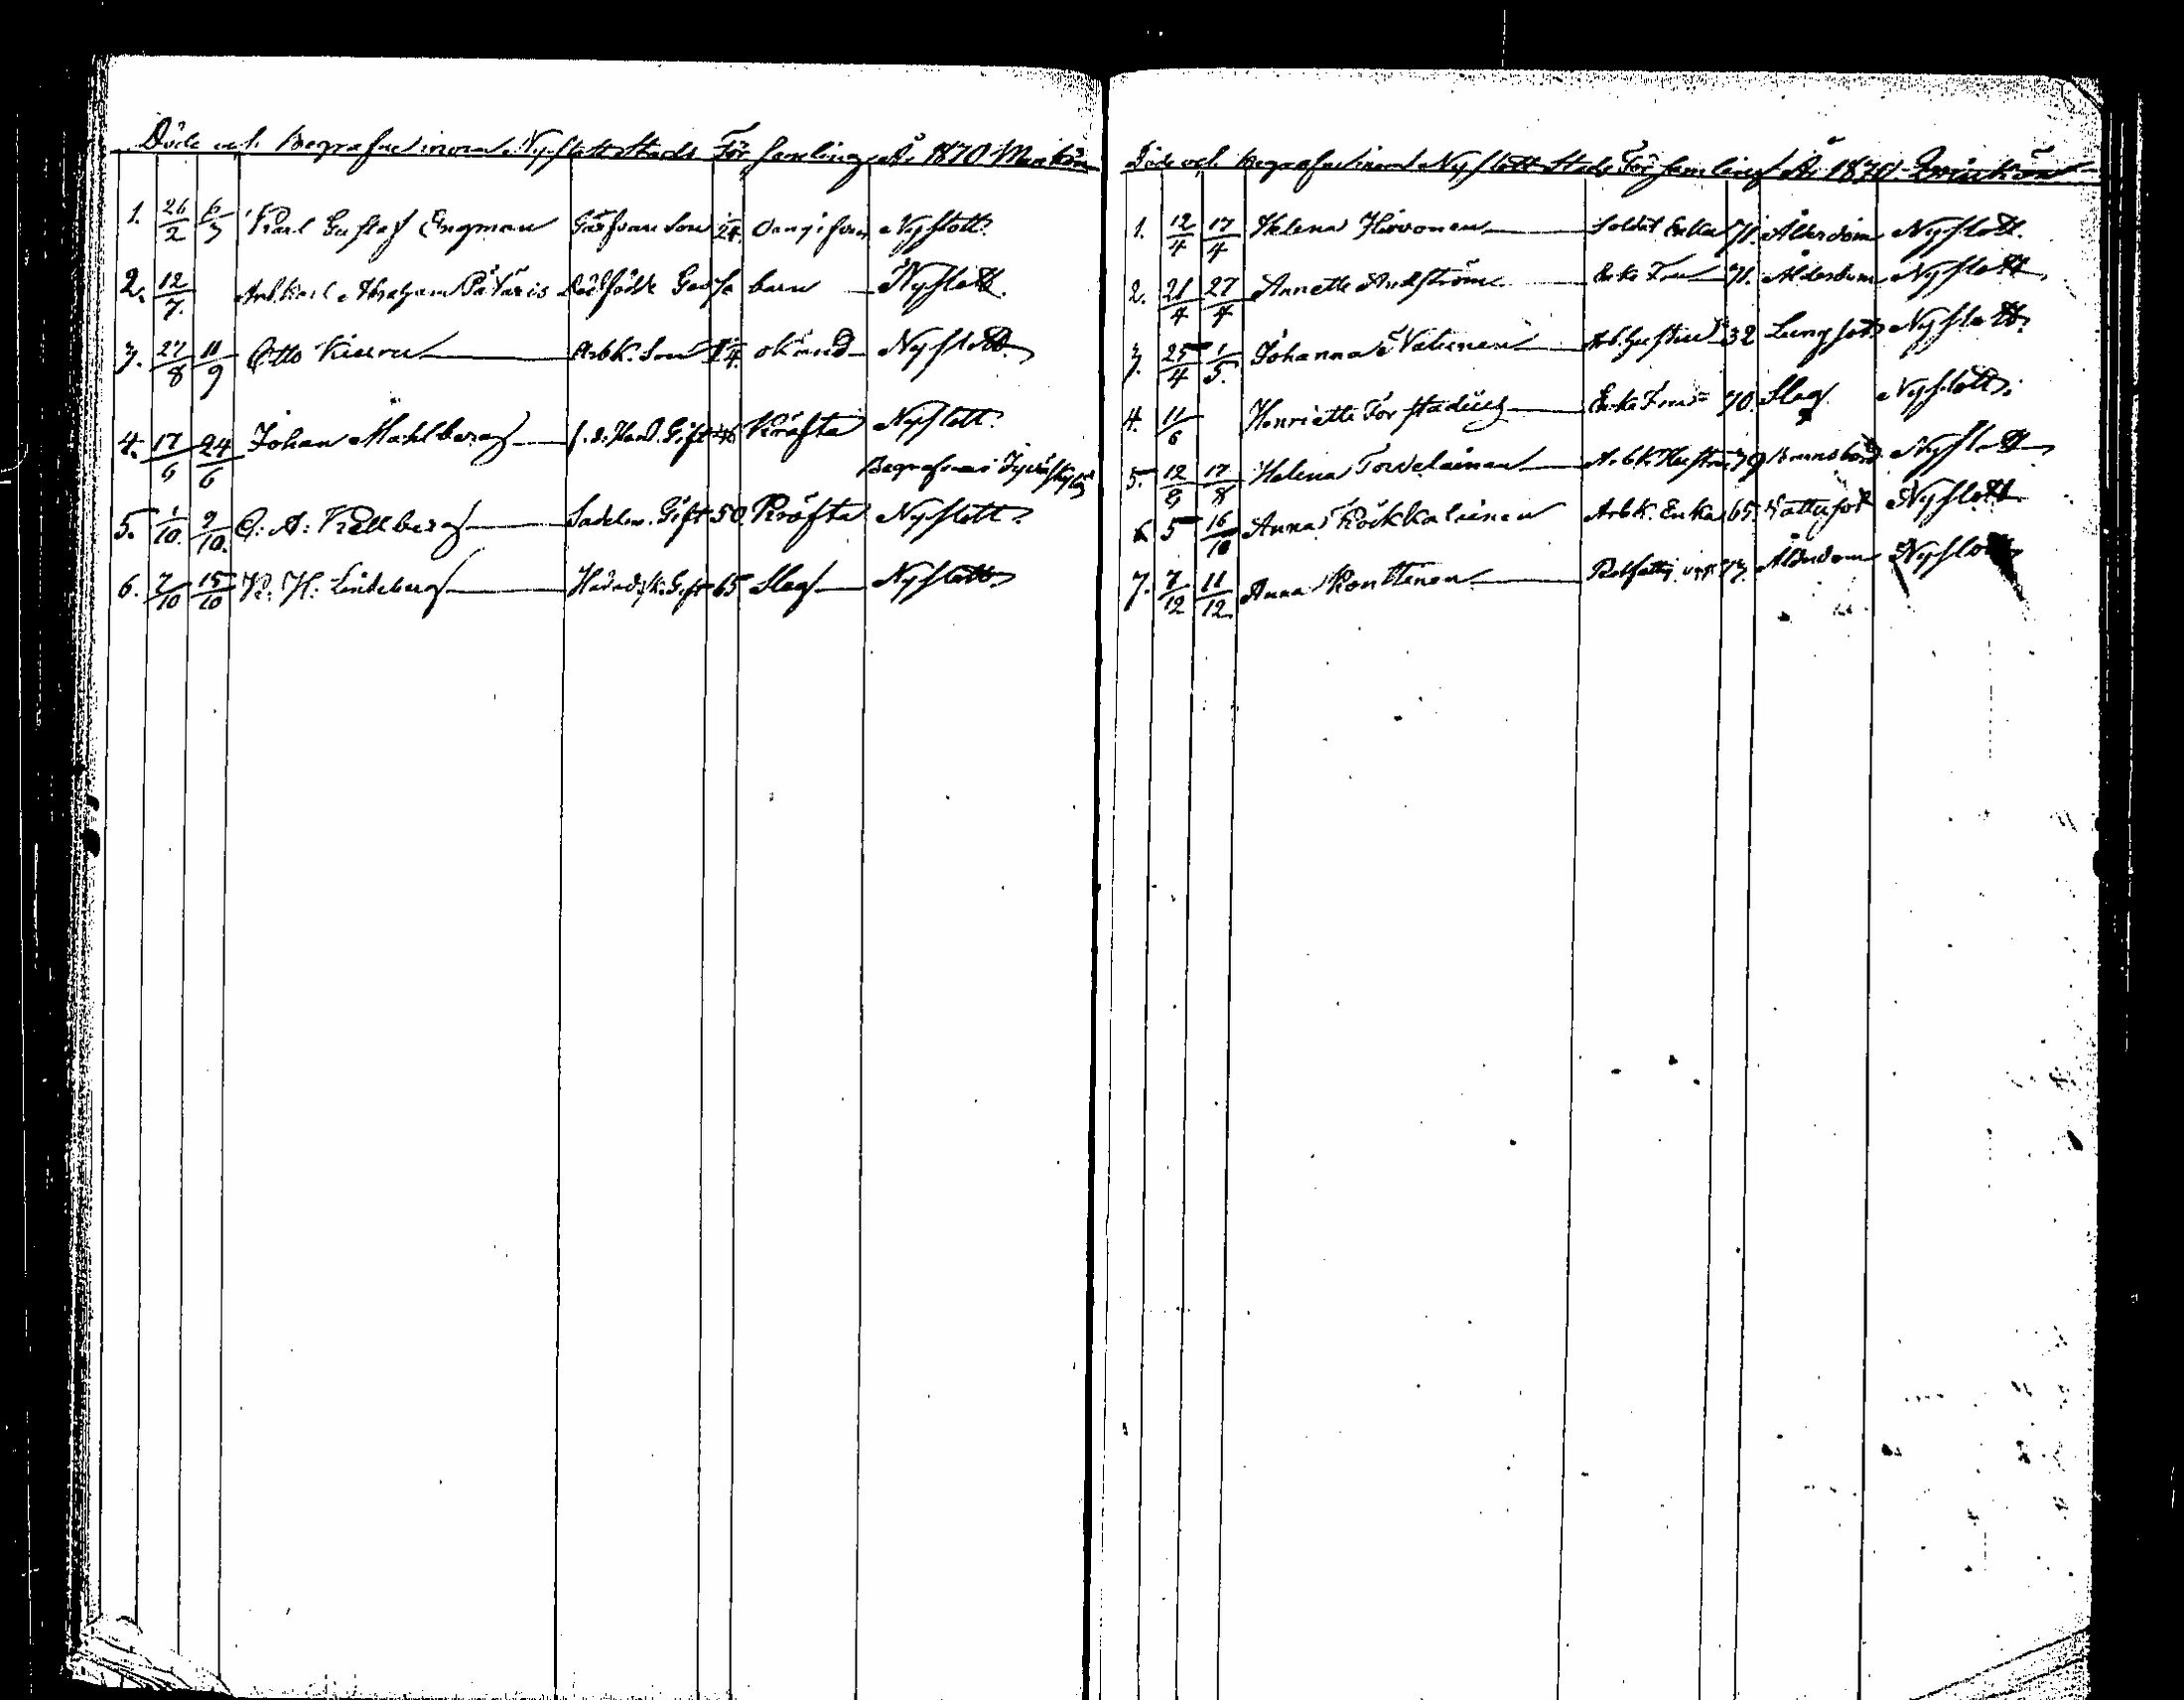 Döde och Begrafne inom Nyslotts Stads Församling År 1870 Mankön
1. 26/2 6/3 Karl Gustaf Engman Garfvare Son Oangifven Nyslott.
2. 12/7. Arb.karl Abraham Dödfödt Gosse barn Nyslott.
3. 27/8 11/9 Otto Arbk. Son okänd Nyslott.
4. 17/6 24/6 Johan Mahlberg Gift 46 Kräfta Nyslott.
Begrafven i Jyväskylä
5. 1/10. 9/10. C. A. Kellberg Sadelm. Gift 50 Kräfta Nyslott.
6. 7/10 15/10 K. H. Lindeberg Gift 65 Slag Nyslott
Döde och begrafne inom Nyslott Stads Församling År 1870. Qvinkön
1. 12/4 17/4 Helena Hirvonen Soldat Enka 71. Ålderdom Nyslott.
2. 21/4 27/4 Annette Andström Enke Fru 71. Ålderdom Nyslott
3. 25/4 1/5. Johanna Valienen Arb. Hustru 32 Lungsot Nyslott.
4. 11/6 Henriette Forstadius Enke Fru 70. Slag Nyslott.
5. 12/8 17/8 Helena Toivelainen Arbk. Hustru 39 Barnsbörd Nyslott
6. 5 16/10 Anna Kökkalainen Arbk. Enka 65. Vattusot Nyslott
7. 7/12 11/12. Anna Konttinen Rotfattig 73. Ålderdom Nyslott